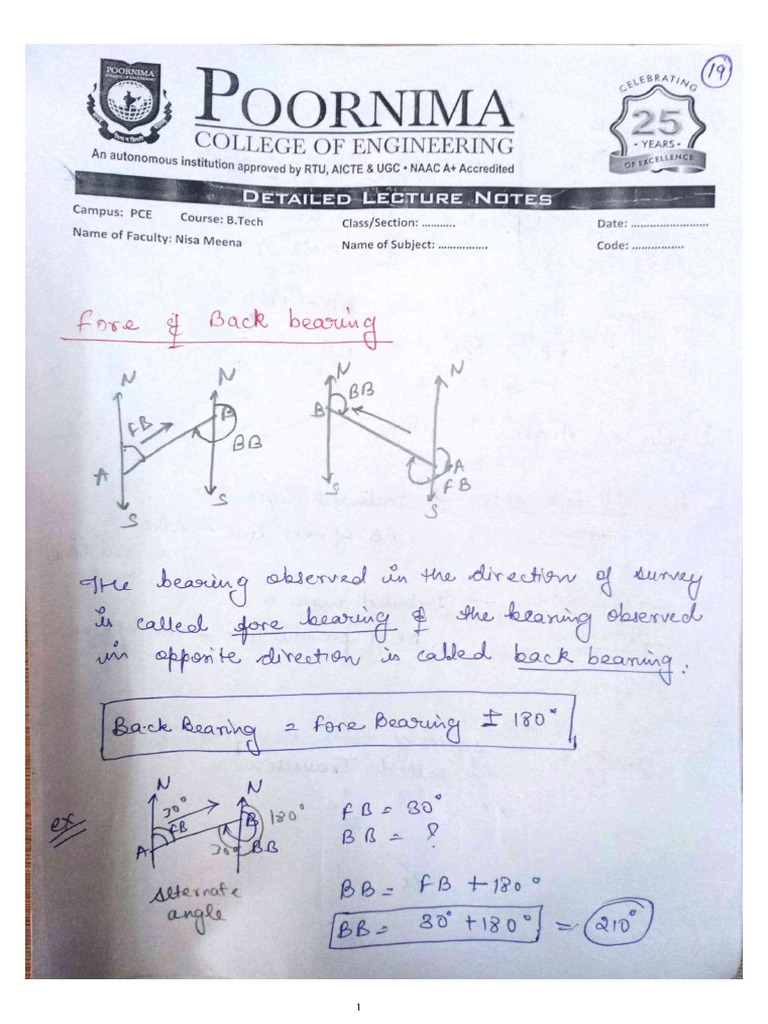 19
POORNIMA
COLLEGE OF ENGINEERING
POORNIMA
COLLEGE OF ENGINEERING
An autonomous institution approved by RTU, AICTE & UGC • NAAC A+ Accredited
CELEBRATING
25
• YEARS •
OF EXCELLENCE
DETAILED LECTURE NOTES
Campus: PCE Course: B.Tech Class/Section: ........... Date: .......................
Name of Faculty: Nisa Meena Name of Subject: ................ Code: ................
Fore & Back bearing
N N N N
FB B BB B BB
A A
FB
S S S S
The bearing observed in the direction of survey
is called fore bearing & the bearing observed
in opposite direction is called back bearing.
Back Bearing = Fore Bearing ± 180°
ex
N N
30° FB B 180°
A 30° BB
alternate
angle
FB = 30°
BB = ?
BB = FB + 180°
BB = 30° + 180° = 210°
1